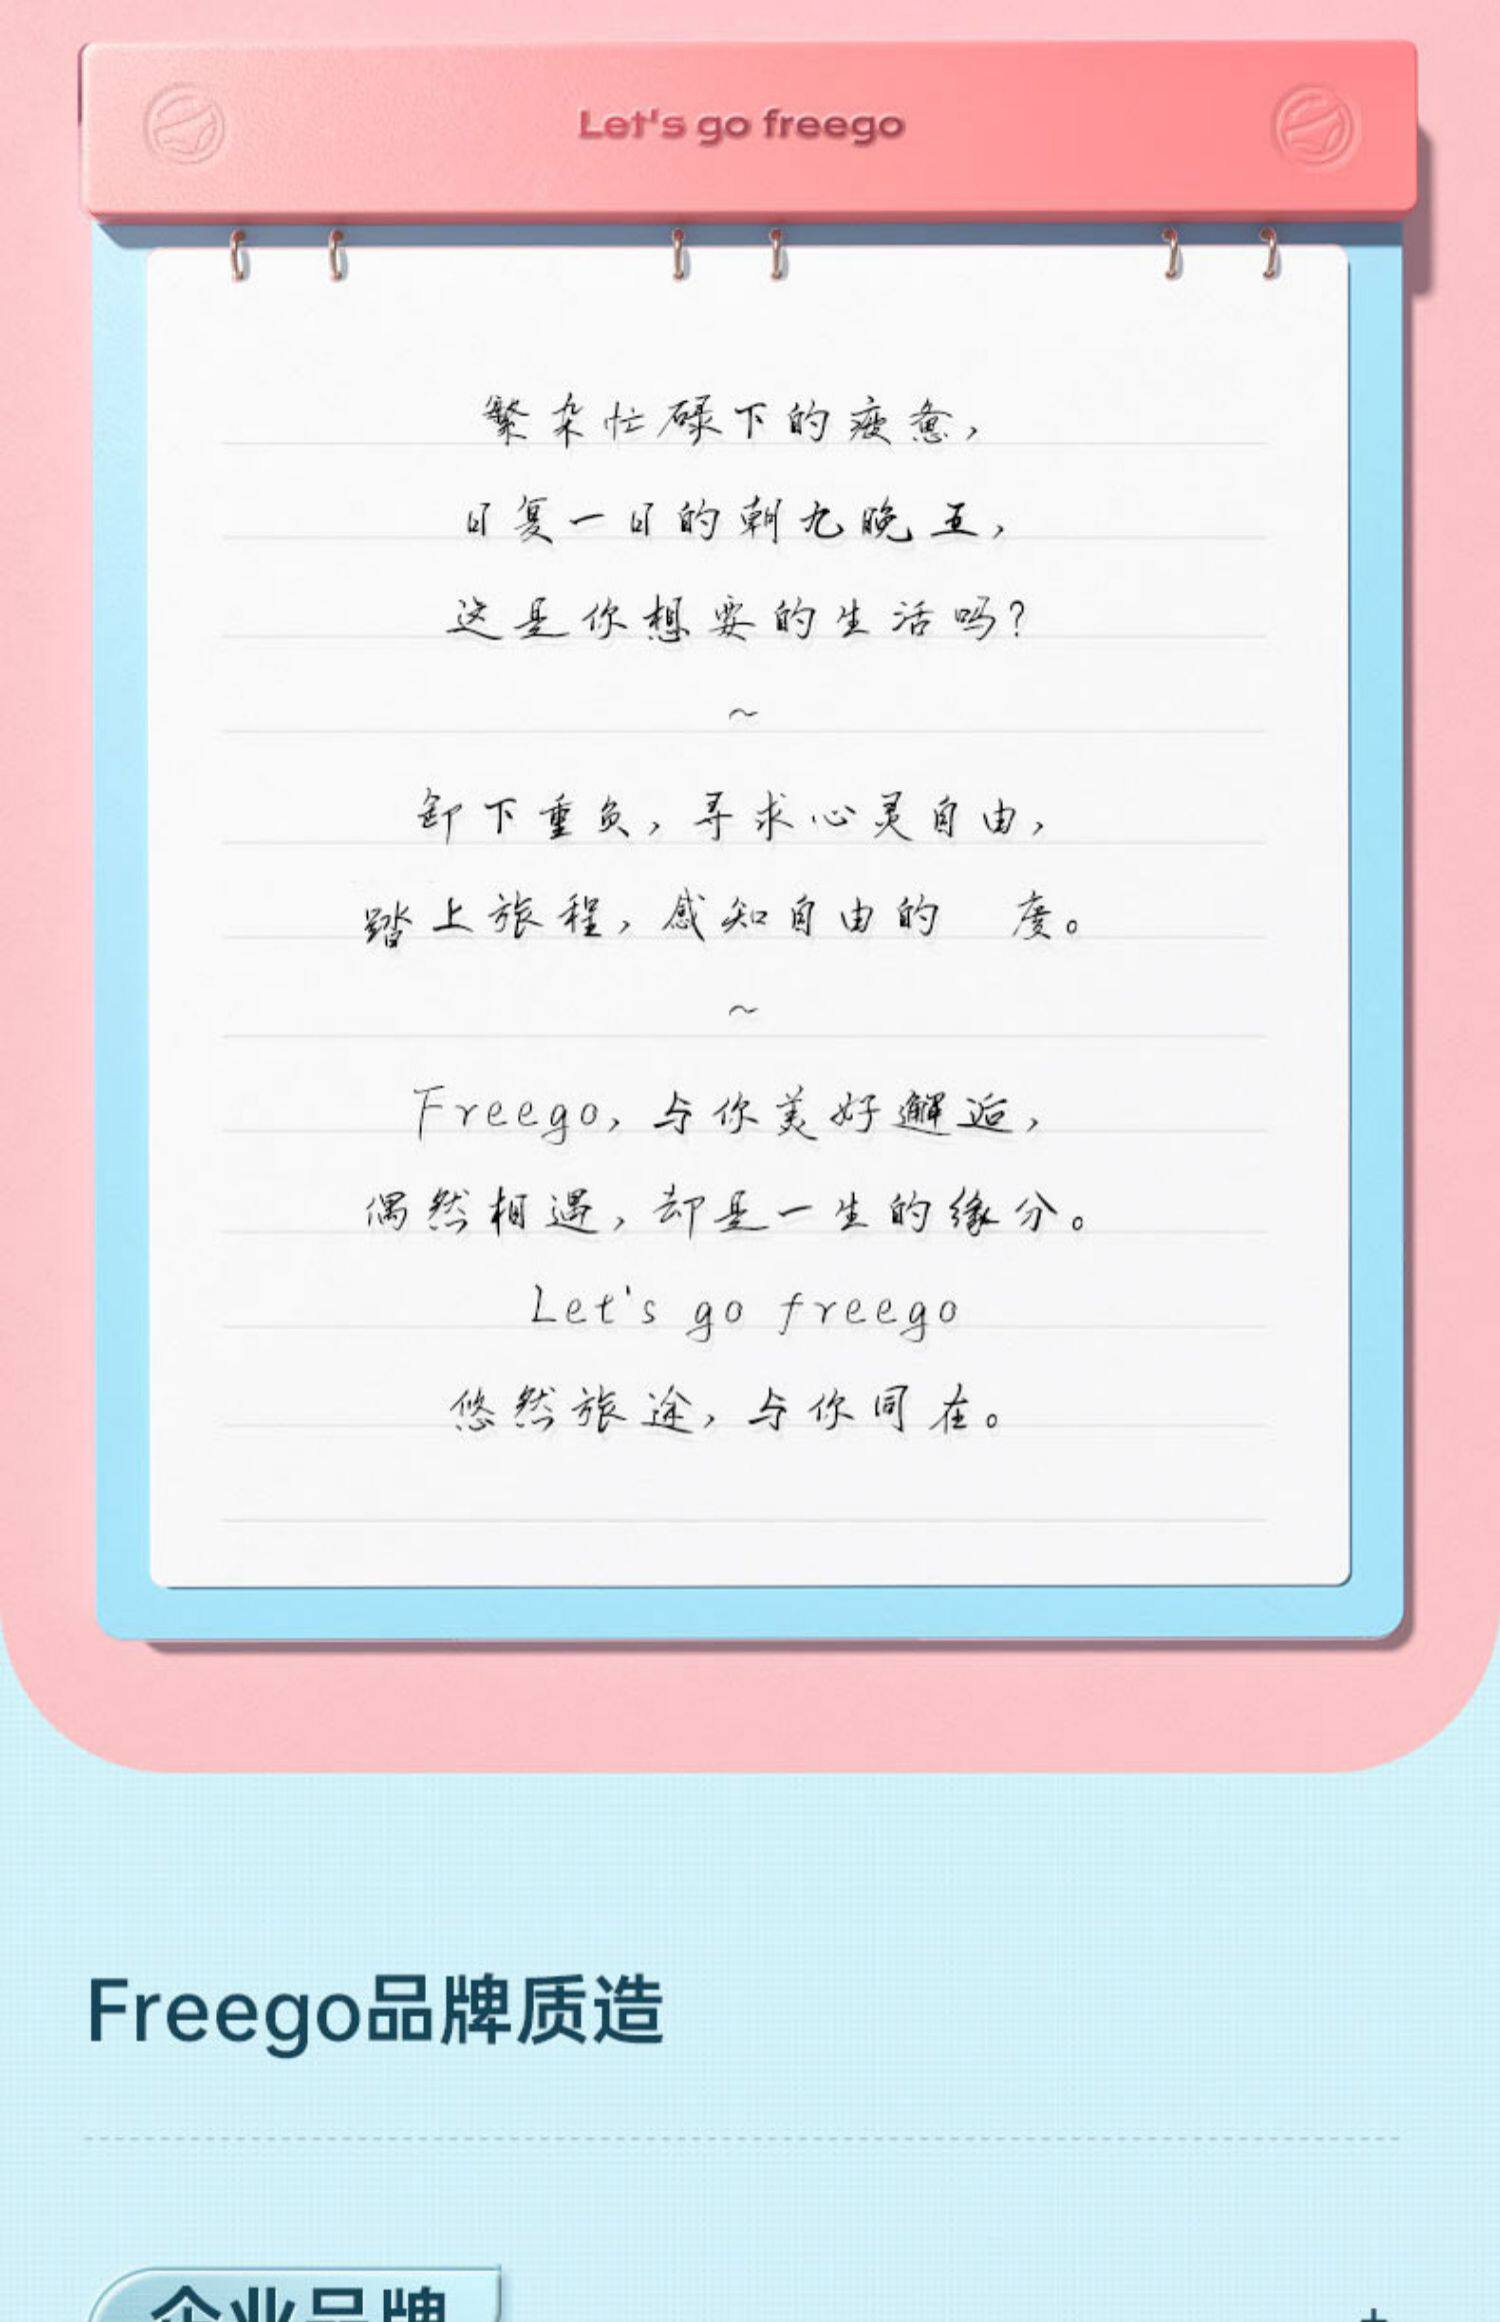 Let's go freego
繁杂忙碌下的疲惫，
日复一日的朝九晚五，
这是你想要的生活吗？
~
卸下重负，寻求心灵自由，
踏上旅程，感知自由的　度。
~
Freego，与你美好邂逅，
偶然相遇，却是一生的缘分。
Let's go freego
悠然旅途，与你同在。
Freego品牌质造
企业品牌